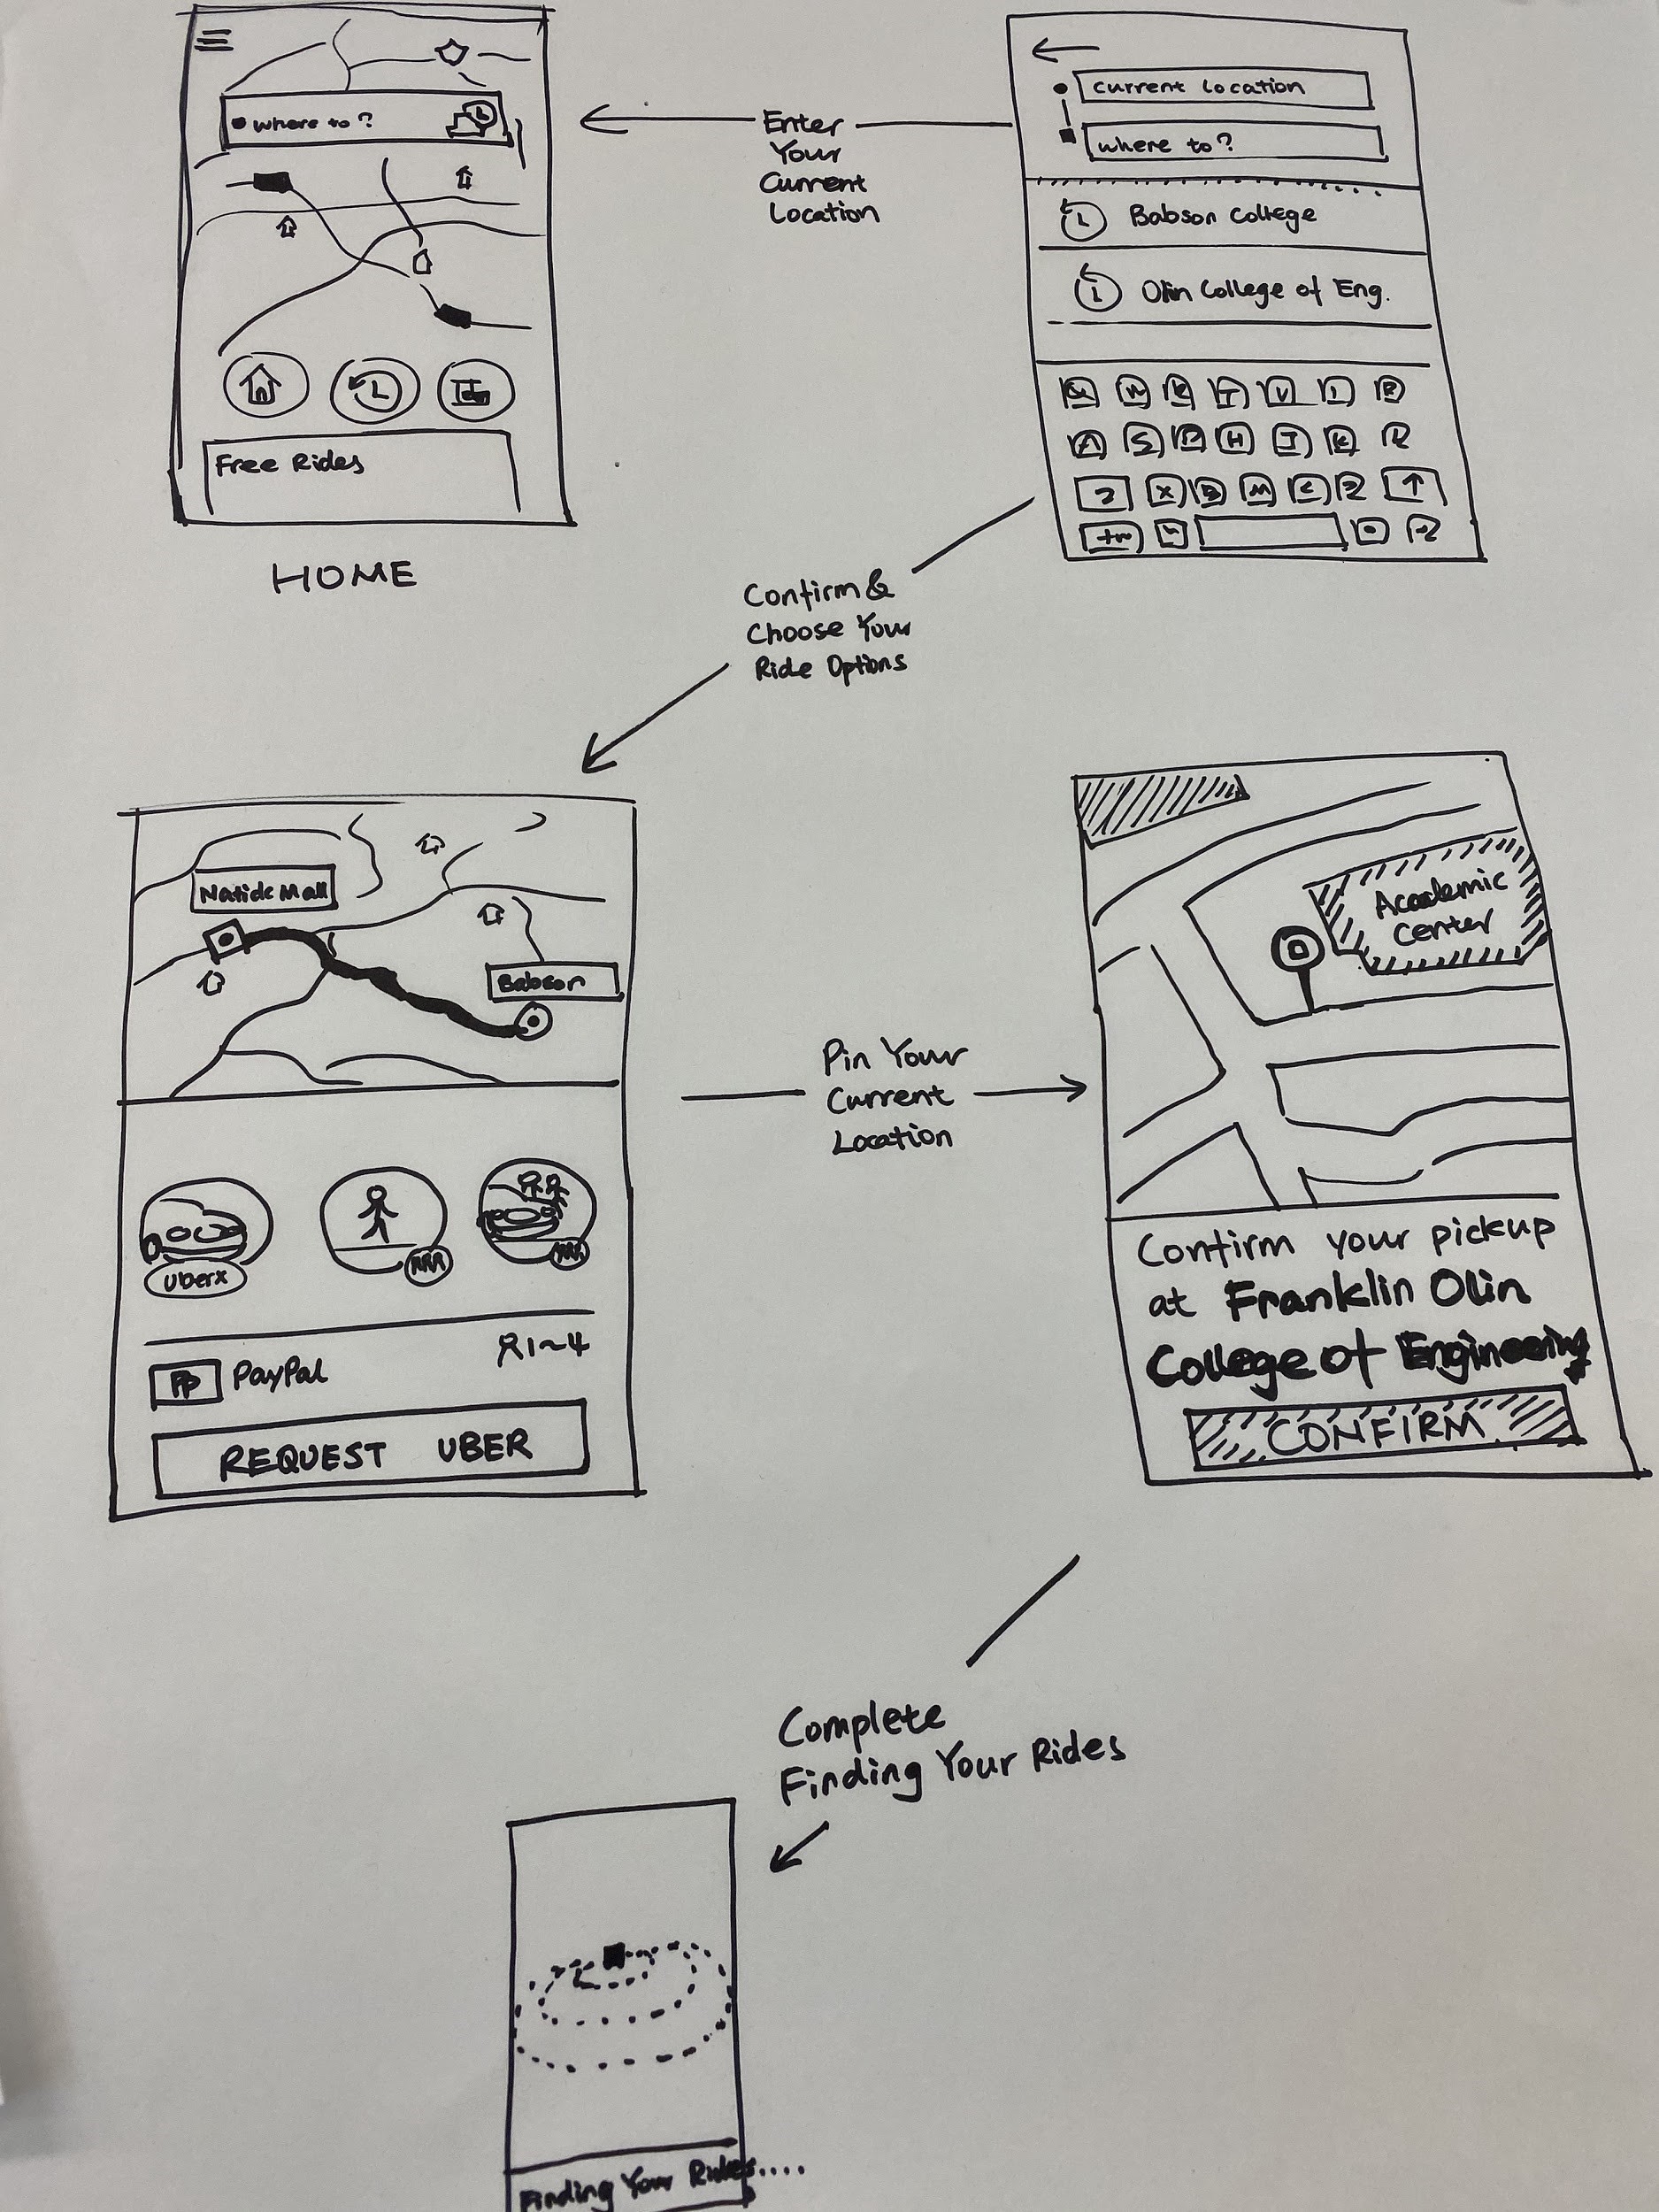 where to?
Free Rides
HOME
Enter
Your
Current
Location
Current Location
where to?
Babson College
Olin College of Eng.
Confirm &
Choose Your
Ride Options
Natick Mall
Babson
uberx
1~4
PP PayPal
REQUEST UBER
Pin Your
Current
Location
Academic
Center
Confirm your pickup
at Franklin Olin
College of Engineering
CONFIRM
Complete
Finding Your Rides
Finding Your Rides....